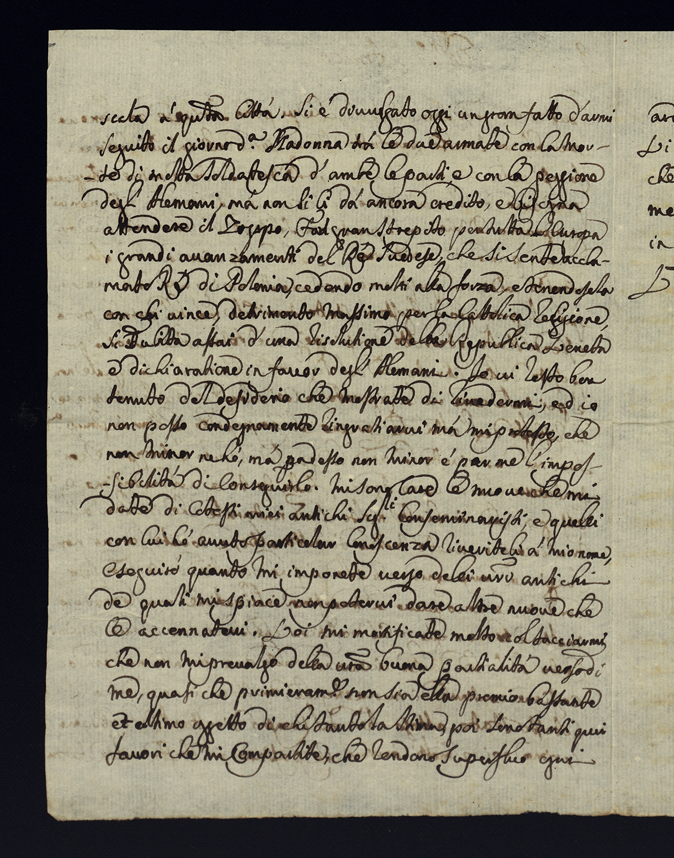 scita à q.ta Città. Si è divulgato oggi un gran fatto d'armi
seguito il giorno d.a Madonna trà le due armate con la mor-
-te di molta soldatesca d'ambe le parti e con la peggione
degl'Alemani, mà non li si dà ancora credito, e bisogna
attendere il Zoppo, Fà gran strepito per tutta l'Europa
i grandi avanzamenti del Rè Suedese, che si sente accla-
mato Rè di Polonia, cedendo molti alla forza, e tenendosela
con chi vince, detrimento massimo per la Cattolica Religione,
Si dubita assai d'una risolutione della Republica Veneta
e dichiaratione in favor degl'Alemani. Io vi resto ben
tenuto del desiderio che mostrate di rivedermi, ed io
non posso condegnamente ringratiarvi mà mi protesto, che
non minor ne hò, mà adesso non minor è par me l'impos-
-sibilità di conseguirlo. Mi sono care le nuove che mi
date di cotesti miei antichi Sig.ri Conseminaristi, e quelli
con cui hò avuto particolar conoscenza riveriteli à mio nome,
e seguirò quanto mi imponete verso delli vrĩ antichi
de quali mi spiace non potervi dare altre nuove che
le accennatevi. Voi mi mortificate molto col tacciarmi
che non mi prevalgo della vrã buona partialità verso di
me, quasi che primieram.te non sia ella premio bastante
et ultimo oggetto di chi tanto la stima, poi sono tanti qui
favori che mi compartite, che rendono superfluo ogni
arc
Di
che
me
in